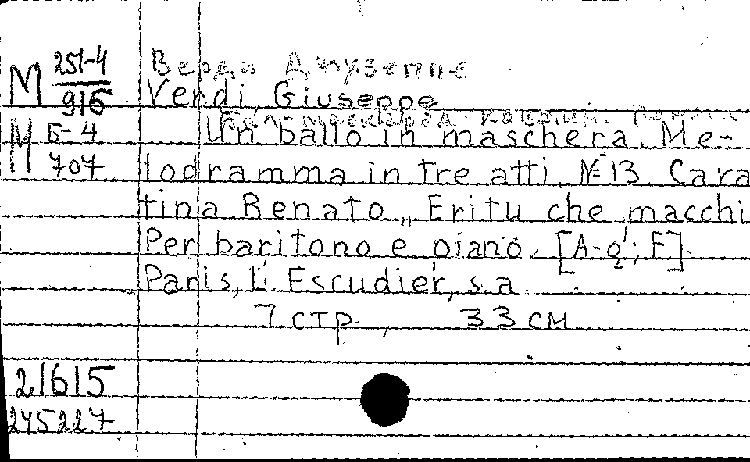 М 251-4/916
М Б-4/707
Верди Джузеппе
Verdi, Giuseppe
Бал-маскарад.
Un ballo in maschera. Me-
lodramma in tre atti. №13 Cava
tina Renato „Eri tu che macchi
Per baritono e piano. [A-g¹; F]
Paris, L. Escudier, s.a.
7 стр., 33 см
21615
245227